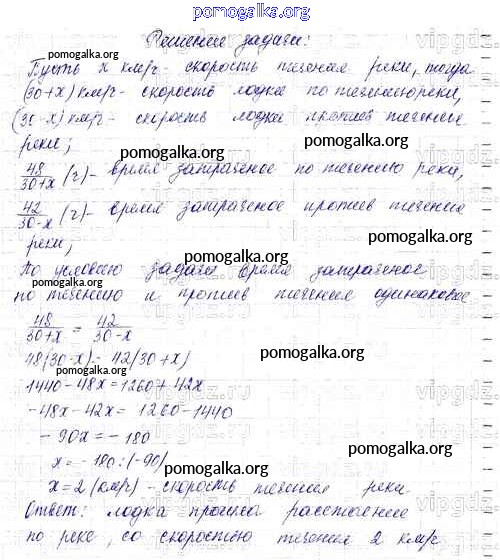 pomogalka.org
Решение задачи:
Пусть x км/ч - скорость течения реки, тогда
(30+x) км/ч - скорость лодки по течению реки,
(30-x) км/ч - скорость лодки против течения
реки;
48/30+x (ч) - время затраченое по течению реки,
42/30-x (ч) - время затраченое против течения
реки;
По условию задачи время затраченое
по течению и против течения одинаковое
48/30+x = 42/30-x
48(30-x) = 42(30+x)
1440-48x=1260+42x
-48x-42x= 1260-1440
-90x=-180
x=-180:(-90)
x=2 (км/ч) - скорость течения реки
Ответ: лодка прошла расстояние
по реке, со скоростью течения 2 км/ч
pomogalka.org
pomogalka.org
pomogalka.org
pomogalka.org
pomogalka.org
pomogalka.org
pomogalka.org
pomogalka.org
pomogalka.org
pomogalka.org